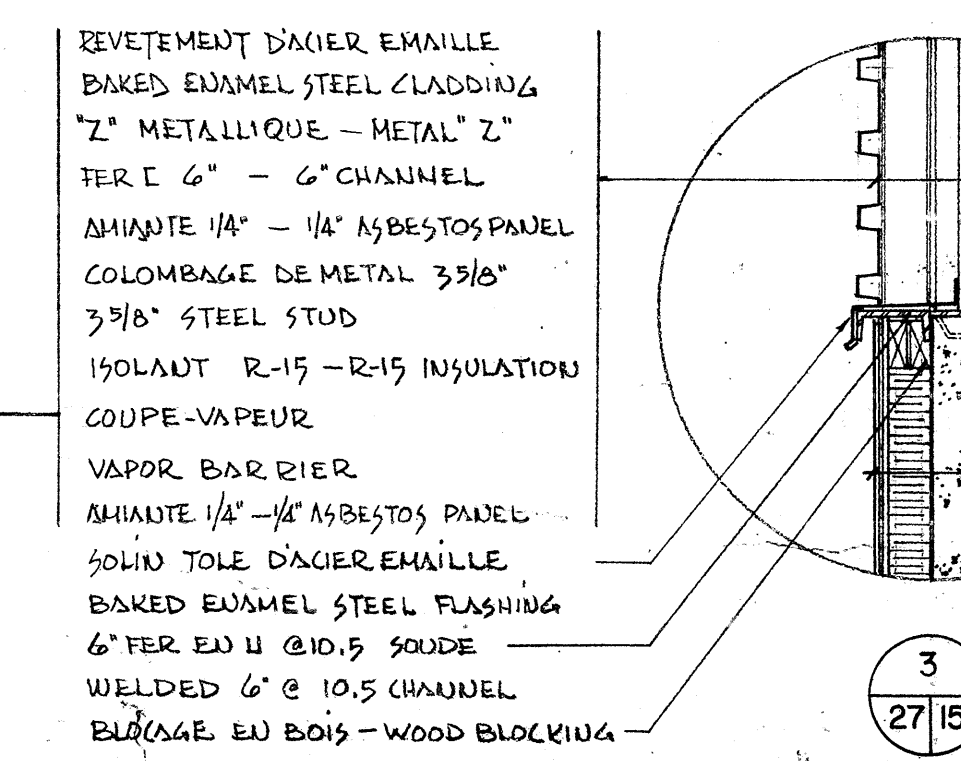 REVETEMENT D'ACIER EMAILLE
BAKED ENAMEL STEEL CLADDING
"Z" METALLIQUE - METAL "Z"
FER [ 6" - 6" CHANNEL
AMIANTE 1/4" - 1/4" ASBESTOS PANEL
COLOMBAGE DE METAL 3 5/8"
3 5/8" STEEL STUD
ISOLANT R-15 - R-15 INSULATION
COUPE-VAPEUR
VAPOR BARRIER
AMIANTE 1/4" - 1/4" ASBESTOS PANEL
SOLIN TOLE D'ACIER EMAILLE
BAKED ENAMEL STEEL FLASHING
6" FER EN U @10.5 SOUDE
WELDED 6" @ 10.5 CHANNEL
BLOCAGE EN BOIS - WOOD BLOCKING
3
27 15